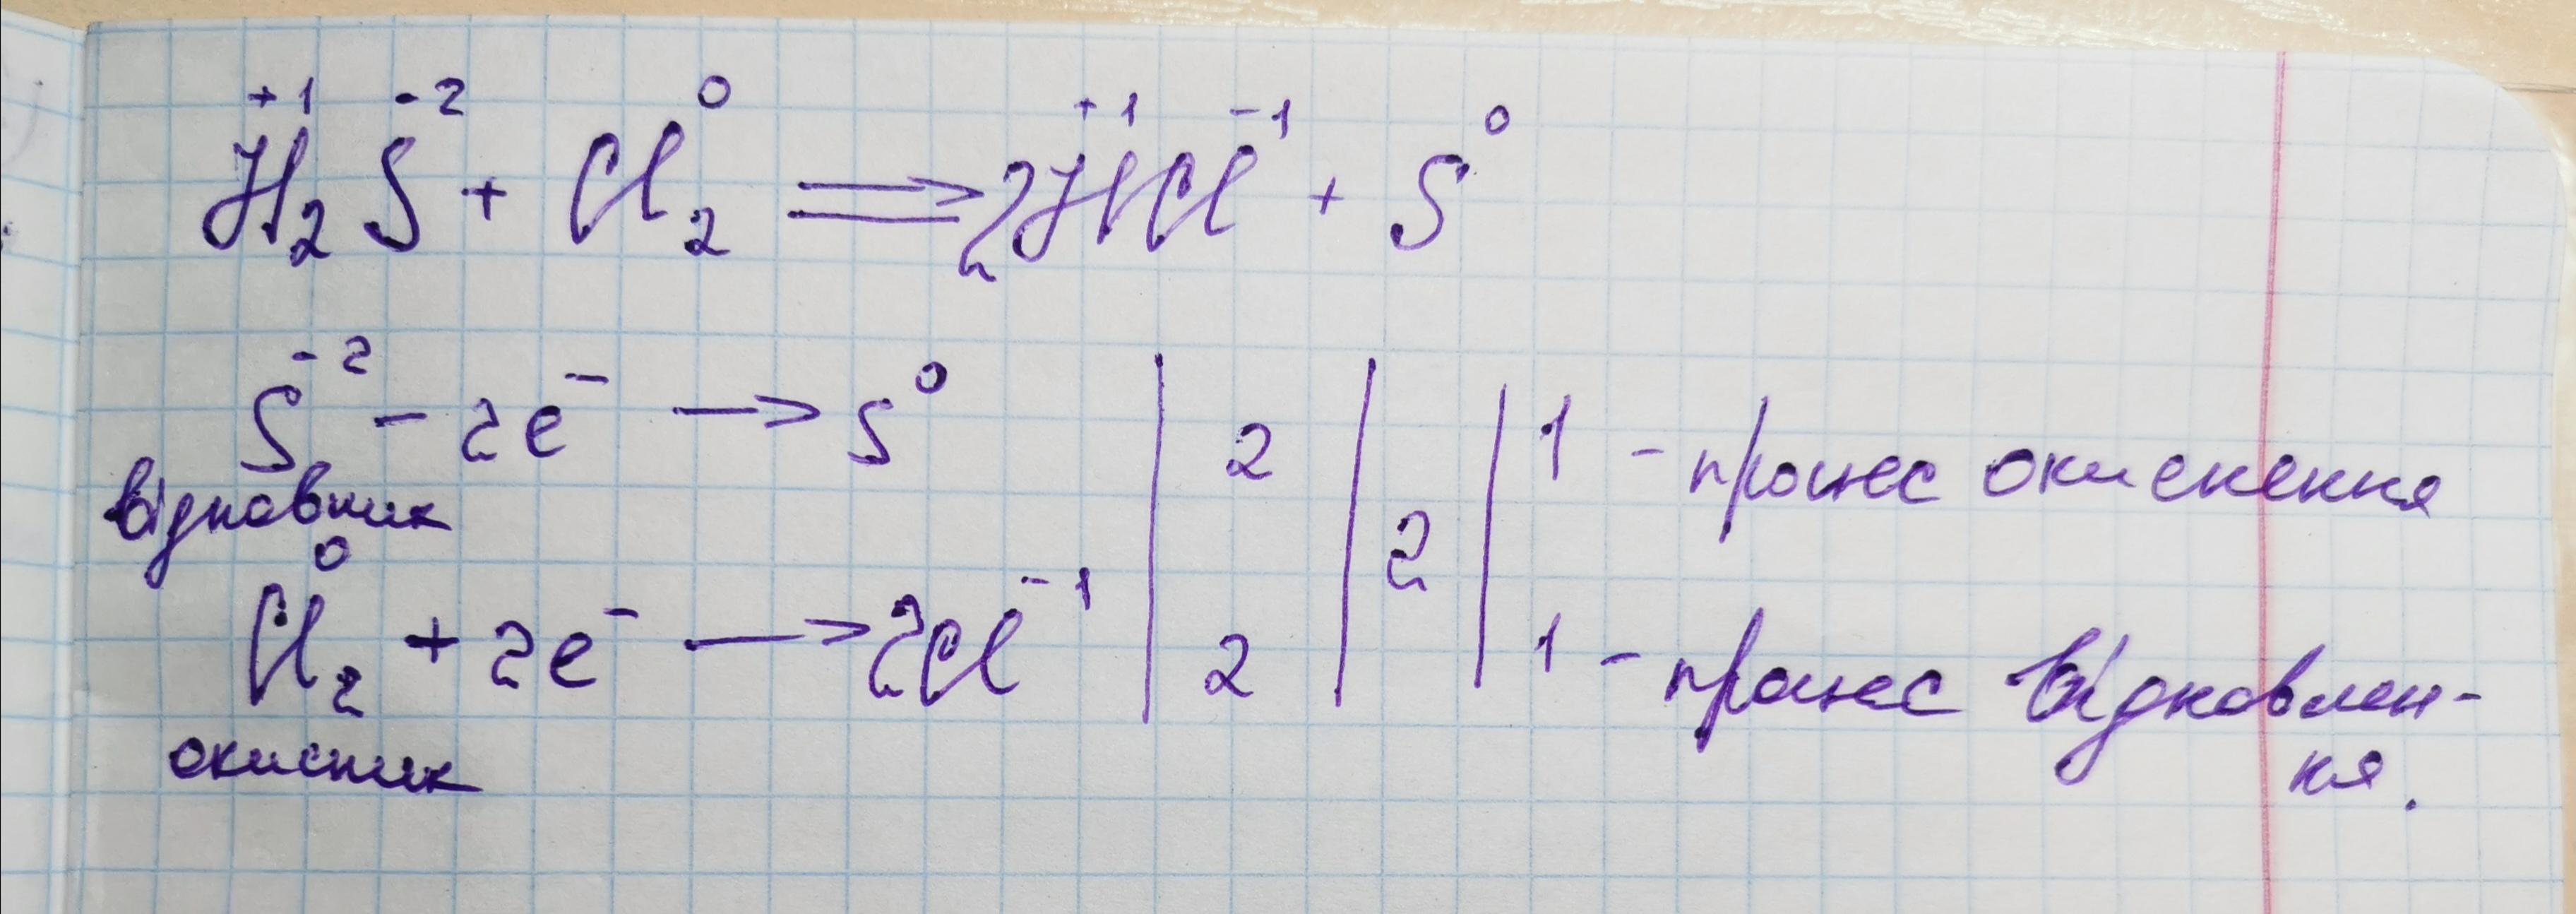 H₂⁺¹S⁻² + Cl₂⁰ ⇒ 2H⁺¹Cl⁻¹ + S⁰
S⁻² − 2e⁻ → S⁰ | 2 | | 1 – процес окиснення
відновник | 2 |
Cl₂⁰ + 2e⁻ → 2Cl⁻¹ | 2 | | 1 – процес відновлен-
ня.
окисник